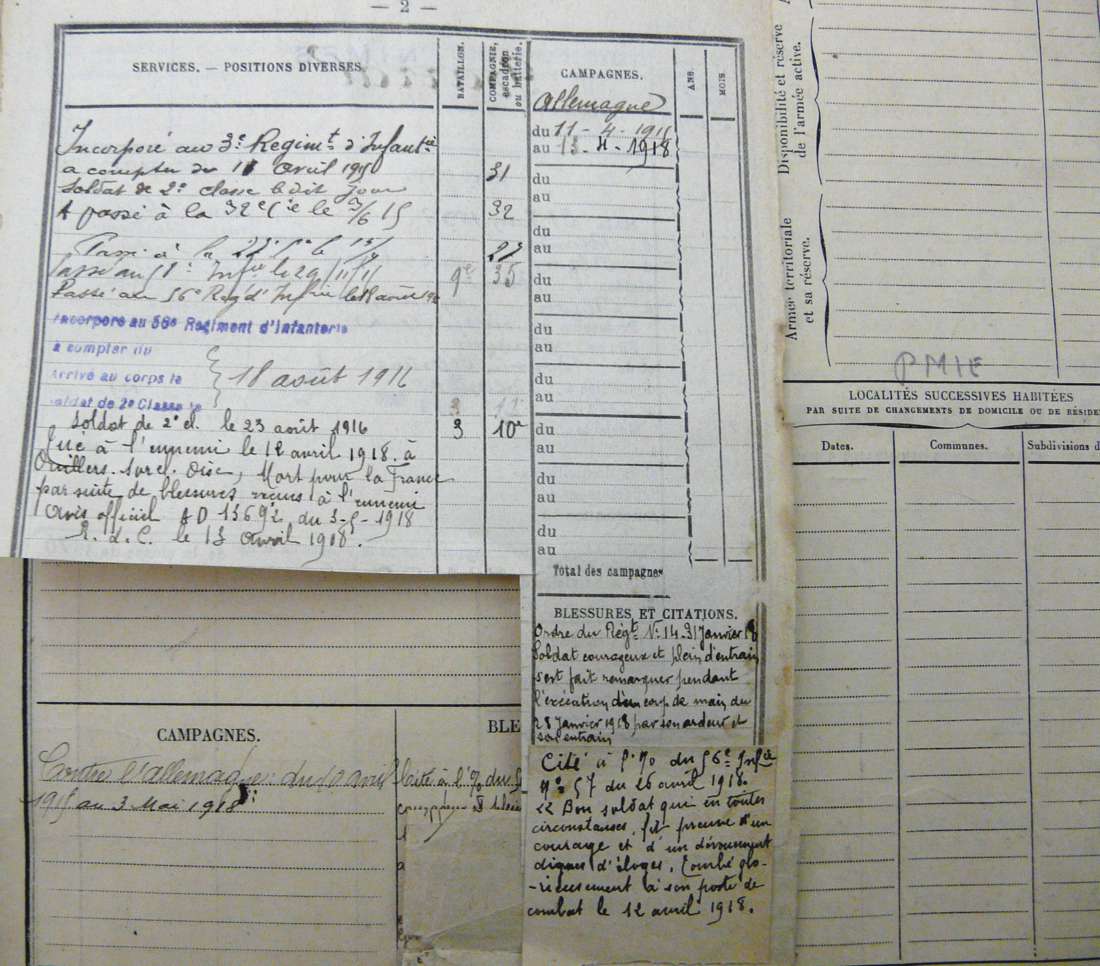 — 2 —
SERVICES. — POSITIONS DIVERSES.
BATAILLON.
COMPAGNIE, escadron ou batterie.
CAMPAGNES.
ANS.
MOIS.
Allemagne
Incorporé au 3e Regimt d'Infantie
du 11 - 4 - 191
au 13 - 4 - 1918
a compter du 11 Avril 191
31
du
Soldat de 2e classe le dit jour
au
A passé à la 32e Cie le 3/6 15
32
du
au
Passé à la
27
Passé au Infie le 29/11/
9e 35
du
au
Passé au 56e Reg d'Infie le 18 août
Incorporé au 56e Regiment d'Infanterie
à compter du
Arrivé au corps le
18 août 1916
Soldat de 2e Classe le
du
au
du
au
Soldat de 2e cl. le 23 août 1916
3
10e
du
au
Tué à l'ennemi le 12 avril 1918. à
Orvillers. Sorel. Oise, Mort pour la France
du
au
par suite de blessures reçues à l'ennemi
Avis officiel AD 13692 du 3-5-1918
R. d. C. le 13 Avril 1918.
du
au
Total des campagnes
BLESSURES ET CITATIONS.
Ordre du Régt No 14. 31 Janvier 18
Soldat courageux et plein d'entrain
s'est fait remarquer pendant
l'exécation d'un corp de main du
28 Janvier 1918 par son ardeur et
son entrain
Cité à l'O/O du 56e Infie
No 57 du 26 avril 1918.
<< Bon soldat qui en toutes
circonstances, fit preuve d'un
courage et d'un dévouement
dignes d'éloges. Tombé glo-
-rieusement à son poste de
combat le 12 avril 1918.
CAMPAGNES.
BLE
Contre l'allemagne: du avril
1915 au 3 Mai 1918
Cité à l'O/O du
Disponibilité et réserve de l'armée active.
Armée territoriale et sa réserve.
PMIE
LOCALITÉS SUCCESSIVES HABITÉES
PAR SUITE DE CHANGEMENTS DE DOMICILE OU DE RÉSIDE
Dates.
Communes.
Subdivisions d